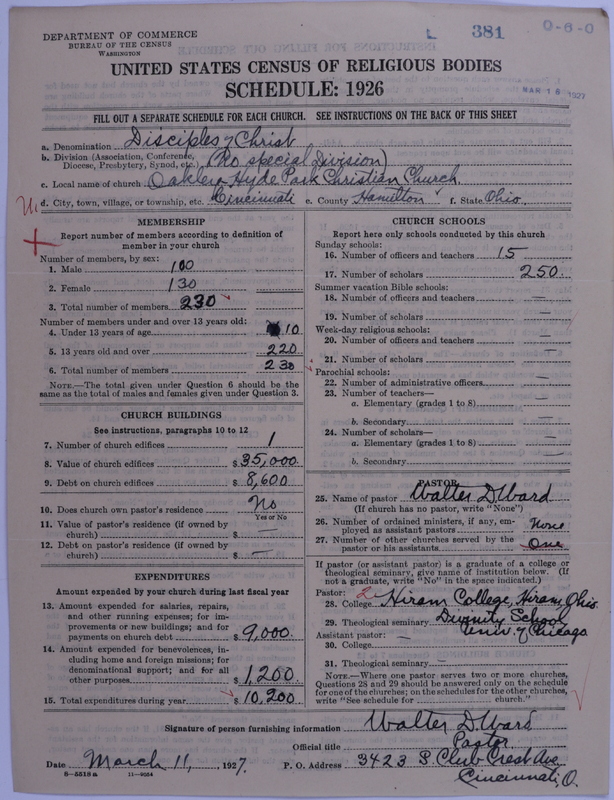 DEPARTMENT OF COMMERCE
BUREAU OF THE CENSUS
WASHINGTON
L 381 0-6-0
UNITED STATES CENSUS OF RELIGIOUS BODIES
SCHEDULE: 1926
MAR 16 1927
FILL OUT A SEPARATE SCHEDULE FOR EACH CHURCH. SEE INSTRUCTIONS ON THE BACK OF THIS SHEET
a. Denomination Disciples of Christ
b. Division (Association, Conference, Diocese, Presbytery, Synod, etc.) (No special Division)
c. Local name of church Hyde Park Christian Church
d. City, town, village, or township, etc. Cincinnati e. County Hamilton f. State Ohio
MEMBERSHIP
Report number of members according to definition of
member in your church
Number of members, by sex:
1. Male 100
2. Female 130
3. Total number of members 230
Number of members under and over 13 years old:
4. Under 13 years of age 10
5. 13 years old and over 220
6. Total number of members 230
NOTE.—The total given under Question 6 should be the
same as the total of males and females given under Question 3.
CHURCH BUILDINGS
See instructions, paragraphs 10 to 12
7. Number of church edifices 1
8. Value of church edifices $ 35,000.
9. Debt on church edifices $ 8,600
10. Does church own pastor's residence No
Yes or No
11. Value of pastor's residence (if owned by
church) $ —
12. Debt on pastor's residence (if owned by
church) $ —
EXPENDITURES
Amount expended by your church during last fiscal year
13. Amount expended for salaries, repairs,
and other running expenses; for im-
provements or new buildings; and for
payments on church debt $ 9,000.
14. Amount expended for benevolences, in-
cluding home and foreign missions; for
denominational support; and for all
other purposes $ 1,200
15. Total expenditures during year $ 10,200
CHURCH SCHOOLS
Report here only schools conducted by this church
Sunday schools:
16. Number of officers and teachers 15
17. Number of scholars 250.
Summer vacation Bible schools:
18. Number of officers and teachers —
19. Number of scholars —
Week-day religious schools:
20. Number of officers and teachers —
21. Number of scholars —
Parochial schools:
22. Number of administrative officers —
23. Number of teachers—
a. Elementary (grades 1 to 8) —
b. Secondary —
24. Number of scholars—
a. Elementary (grades 1 to 8) —
b. Secondary —
PASTOR
25. Name of pastor Walter D Ward
(If church has no pastor, write "None")
26. Number of ordained ministers, if any, em-
ployed as assistant pastors None
27. Number of other churches served by the
pastor or his assistants One
If pastor (or assistant pastor) is a graduate of a college or
theological seminary, give name of institution below. (If
not a graduate, write "No" in the space indicated.)
Pastor:
28. College Hiram College, Hiram, Ohio.
29. Theological seminary Divinity School
Univ. of Chicago
Assistant pastor: —
30. College
31. Theological seminary —
NOTE.—Where one pastor serves two or more churches,
Questions 28 and 29 should be answered only on the schedule
for one of the churches; on the schedules for the other churches,
write "See schedule for church."
Signature of person furnishing information Walter D Ward
Official title Pastor
Date March 11, 1927. P. O. Address 3423 Club Crest Ave
Cincinnati, O.
8-5518a 11-9034